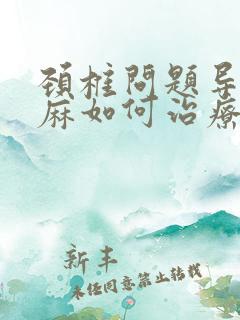 頚柱問題导
麻如何治療
新丰
未任同意禁止转载